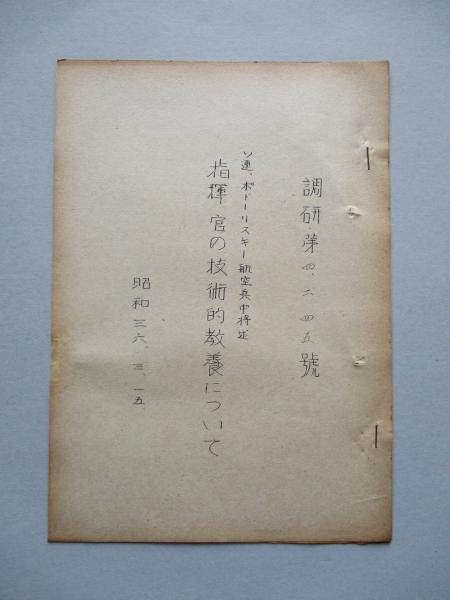 調研第四、二四五號
ソ連、ポドーリスキー航空兵中将述
指揮官の技術的教養について
昭和三六、三、一五